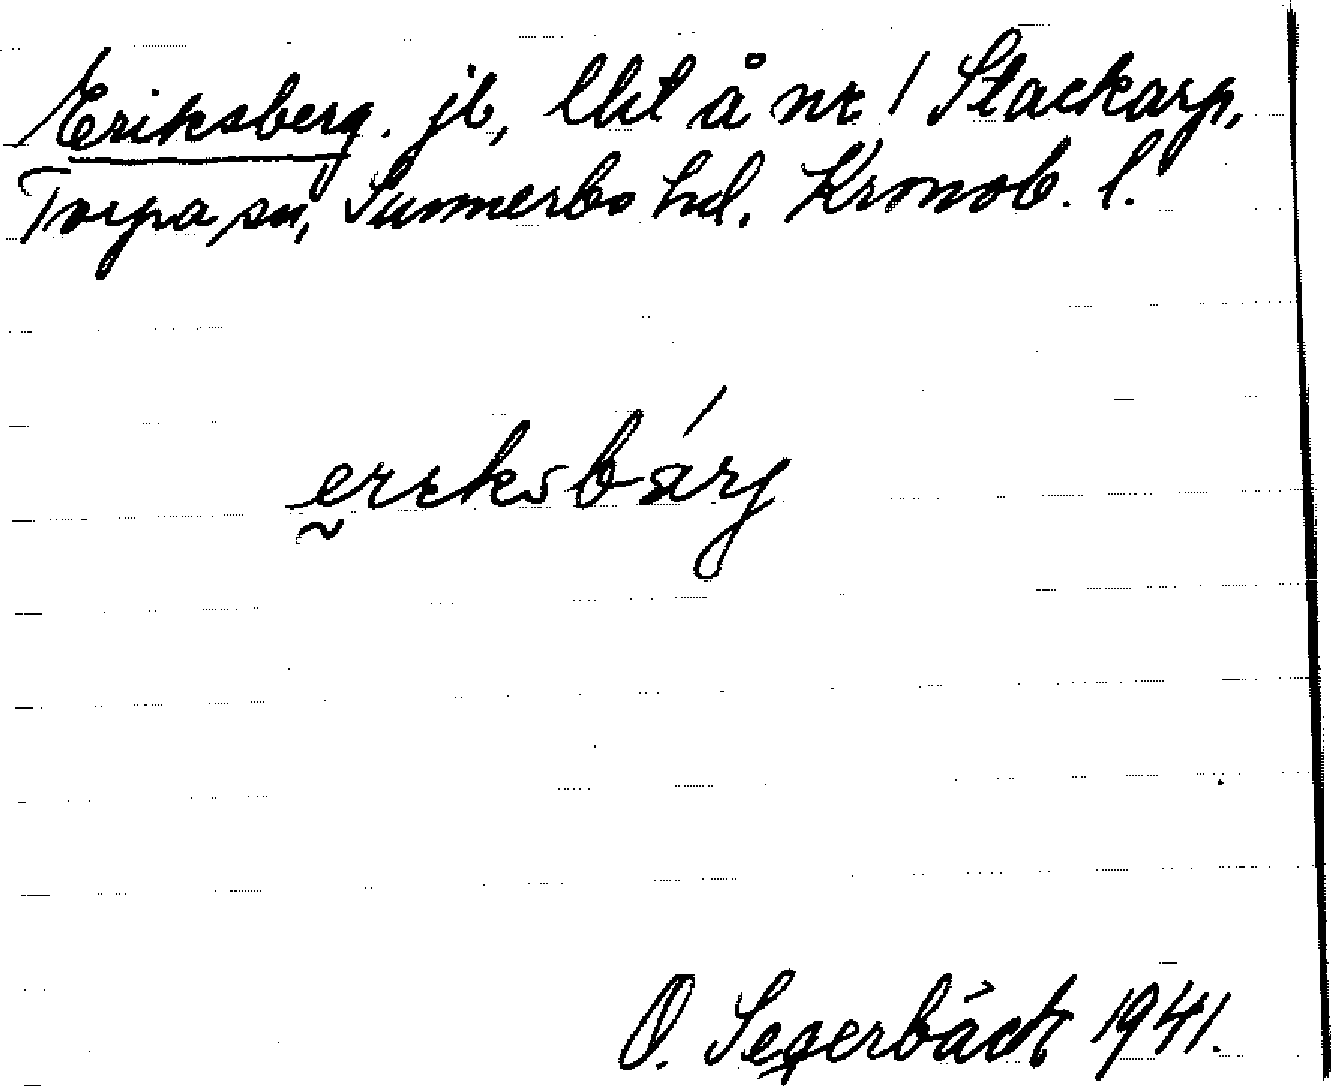 Eriksberg. jb, lht å nr 1 Stackarp,
Torpa sn, Sunnerbo hd. Kronob. l.
erıksbärj
O. Segerbäck 1941.